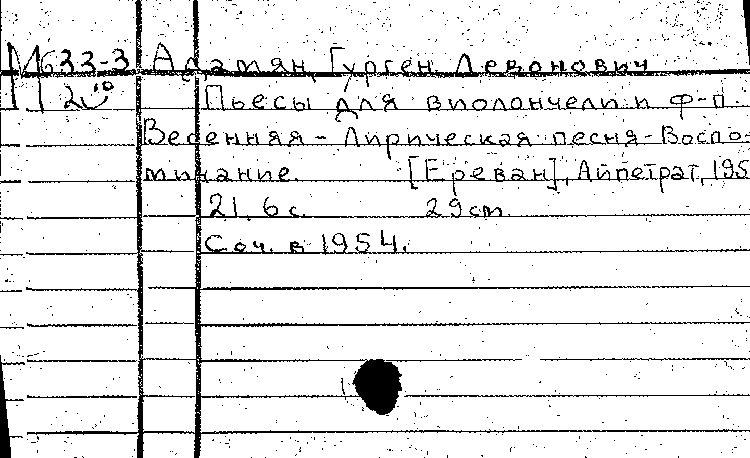 М633-3 Адамян, Гурген Левонович
Пьесы для виолончели и ф-п.
Весенняя - Лирическая песня - Воспо-
минание. [Ереван], Айпетрат, 195
21, 6 с. 29cm.
Соч. в 1954.